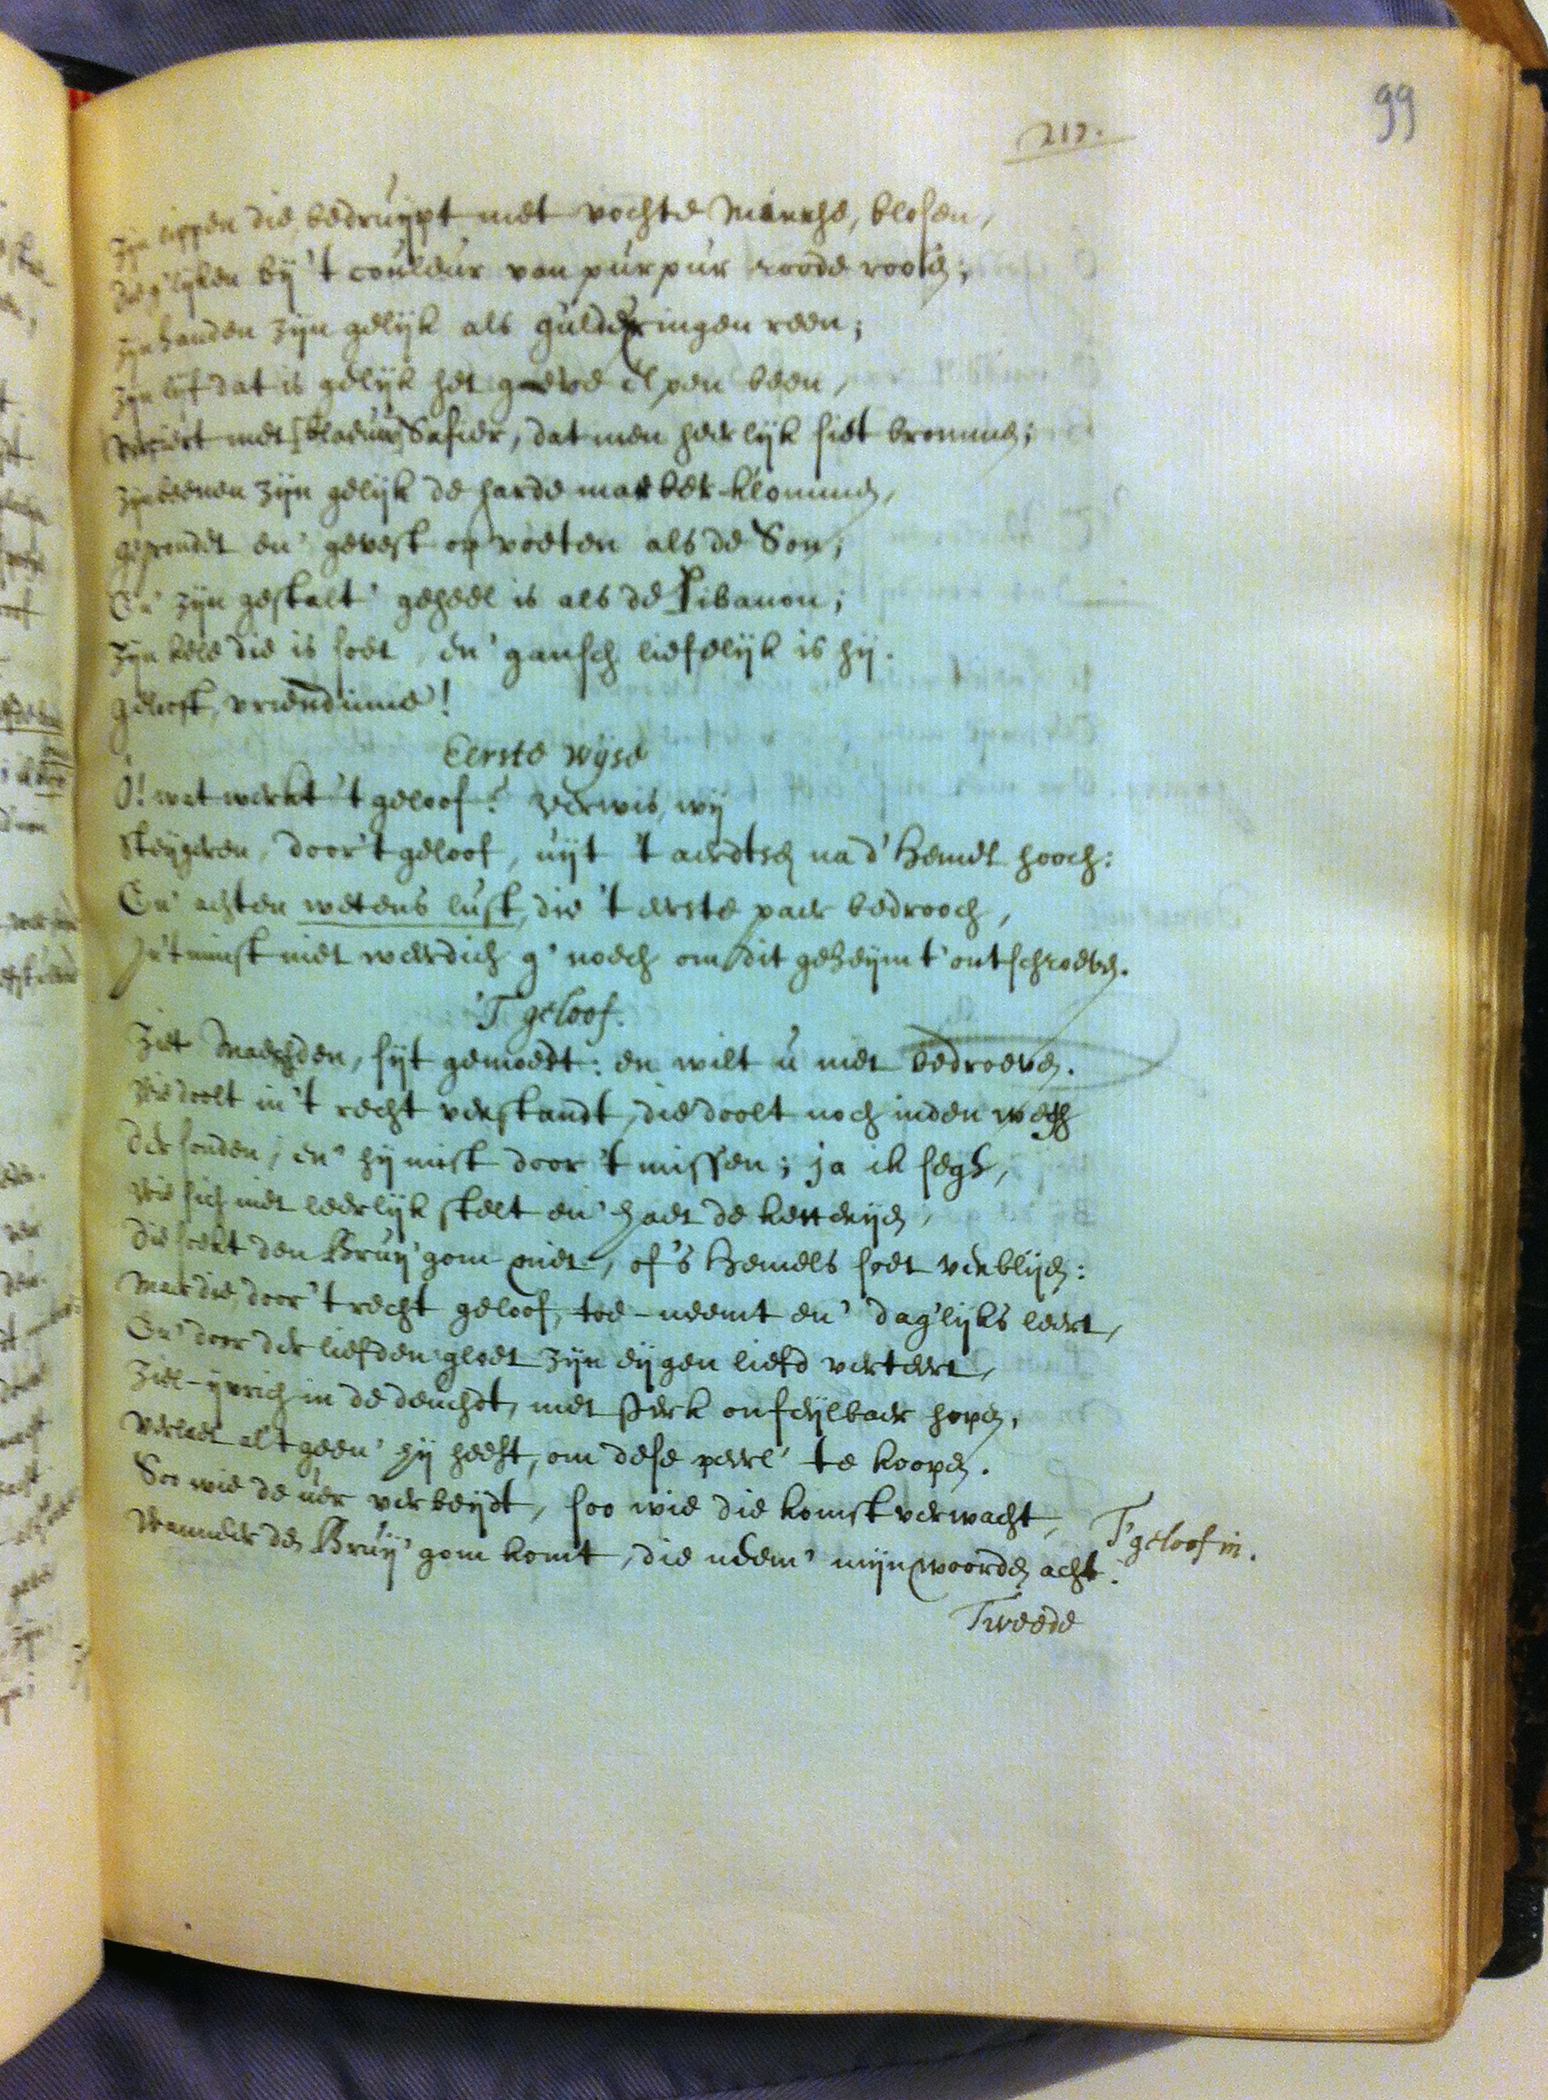 99
217.
Zijn lippen die, bedruÿpt met vochte Mirrhe, blosen,
die g'lijken bij 't couleur van purpur roode roosen;
zijn handen zijn gelijk als gulde ringen reen;
zijn lijf dat is gelijk het elpen been,
verciert met [blaeuw] Safier, dat men heerlijk siet bromme;
zijn beenen zijn gelijk de harde marber-klommen,
gegrondet en' gevest op voeten als de Son;
En' zijn gestalt' geheel is als de Libanon;
Zijn kele die is soet, en' gansch lieffelijk is hij.
gelooft, vriendinne!
Eerste wijse
O! wat werkt 't geloof? Verwis, wij
Steijgeren, door 't geloof, uijt 't aerdtsch na d' Hemel hooch:
En' achten wetens lust, die 't eerste paer bedrooch,
In 't minst niet weerdich g'noech om dit geheijm t' ontschroeven.
'T geloof.
Ziet Maechden, sijt gemoedt: en wilt u niet bedroeven.
Wie doolt in 't recht verstandt, die doolt noch inden wegh
der sonden; en' hij mist door 't missen; ja ik segh,
Wie sich niet leerlijk stelt en' haet de ketterijen,
die soekt den Bruij'gom niet, of 's Hemels soet verblijen:
Maer die, door 't recht geloof, toe-neemt en' dag'lijks leert,
En' door der liefden gloet zijn eijgen liefd verteert,
Ziel-ijvrich in de deuchdt, met sterk onfeijlbaer hopen,
Verlaet al 't geen' hij heeft, om dese perl' te koopen.
Soo wie de uer verbeijdt, soo wie die komst verwacht,
Wanneer den Bruij'gom komt, die neem' mijn woorden acht.
T'geloof in.
Tweede